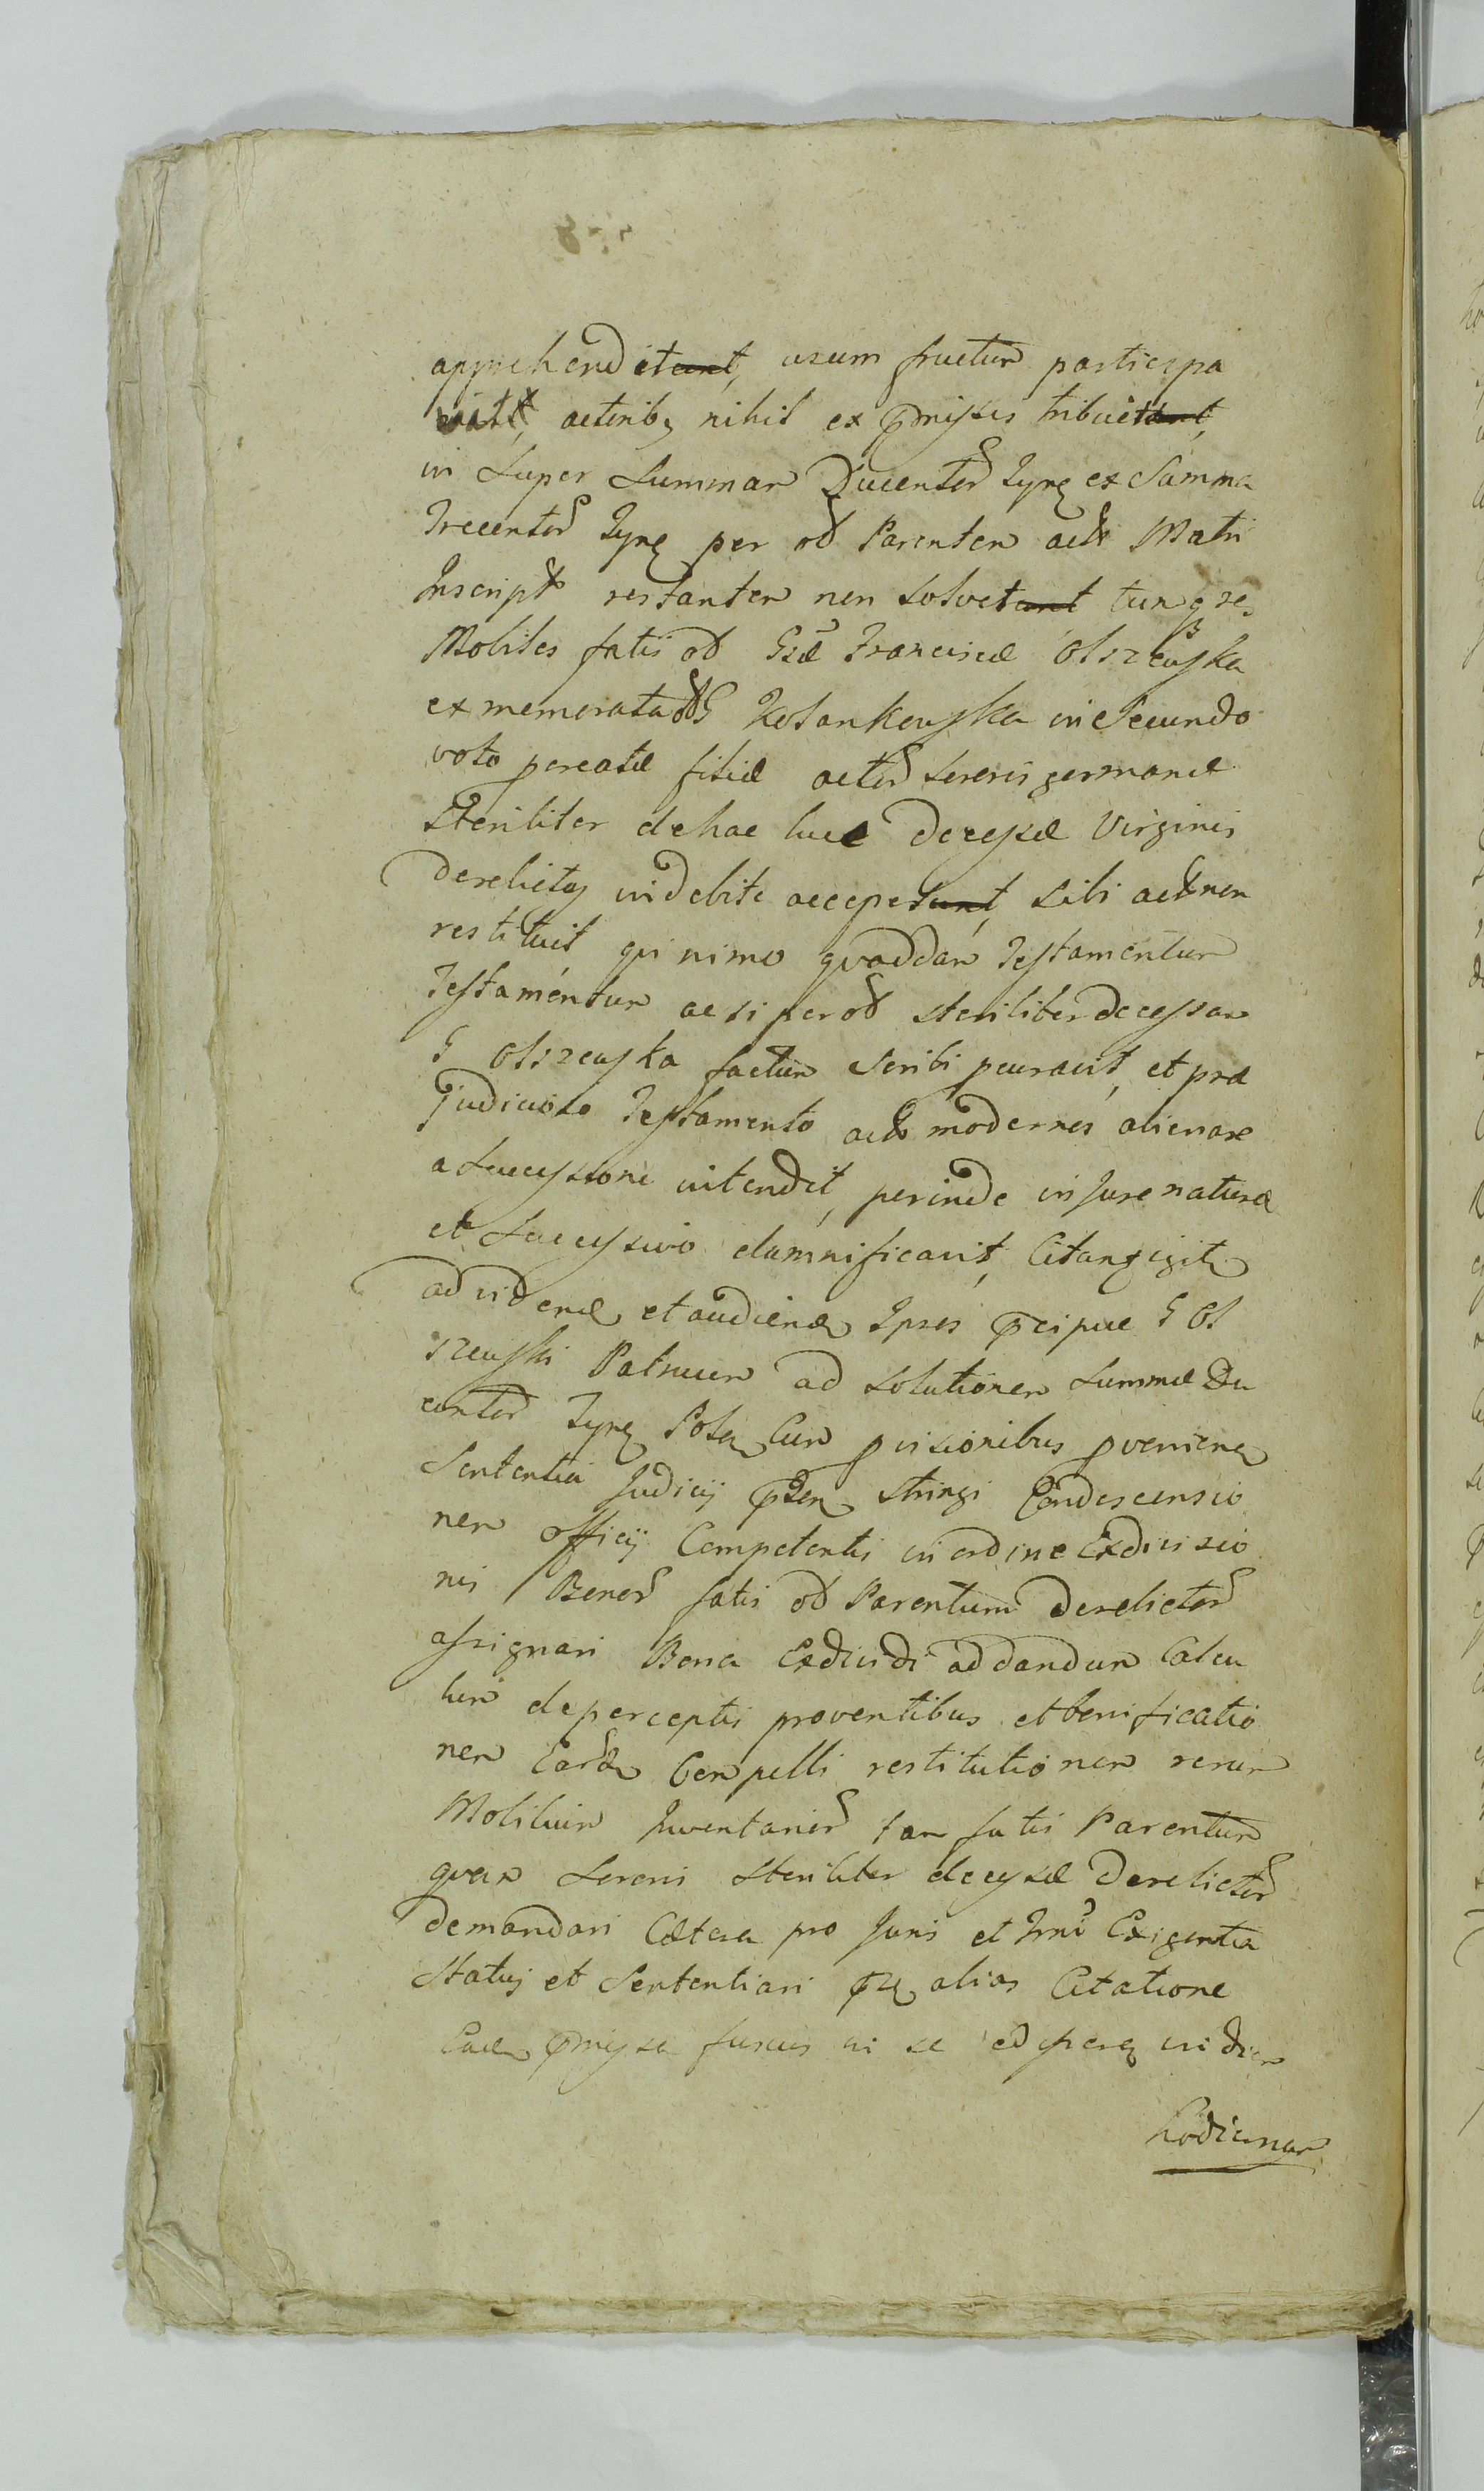 apprehenditant, usum fructum participa
vitt, actoribq nihil ex pmissis tribuittant,
in Super Summam Ducentor Tynq ex Samma
Trecentor Tynq per od Parentem act Matri
Inscript restantem non Solvetant tum q res
Mobiles fatis od Gsæ Franciscæ Olszewska
ex memorata G Kolankowska in Secundo
voto pcreatæ filiæ actor Sororis germanæ
Steriliter de hac luce decessæ Virginis
derelictas indebite accepetant, sibi act non
restituit qui nimo quoddam Testamentum
Testamentum ac si per od steriliter decessam
G Olszewska factum scribi pcuravit, et præ
judicioso Testamento act modernos alienare
a Successione intendit, perinde in Jure naturæ
et Successivo damnificavit, Citangigit
ad viden et audien Ipsos pcipue G Ol
szewski Patruum ad Solutionem Summæ Du
centor Tynq Pol Cum pvisionibus pvenien
Sententia Judicij pten stringi Condescensio
nem officij Competentis in ordine Exdivisio
nis Bonor fatis od Parentum derelictor
assignari Bona Exdividi ad dandum Calcu
lum de perceptis proventibus et bonificatio
nem Eard Compelli restitutionem rerum
Mobilium Inventarior tam fatis Parentum
quam Sororis Steriliter decessæ derelictor
demandari Cætera pro Juris et Tmi Exigentia
Statuj et Sententiari alias Citatione
Ead pmissa fusius in se